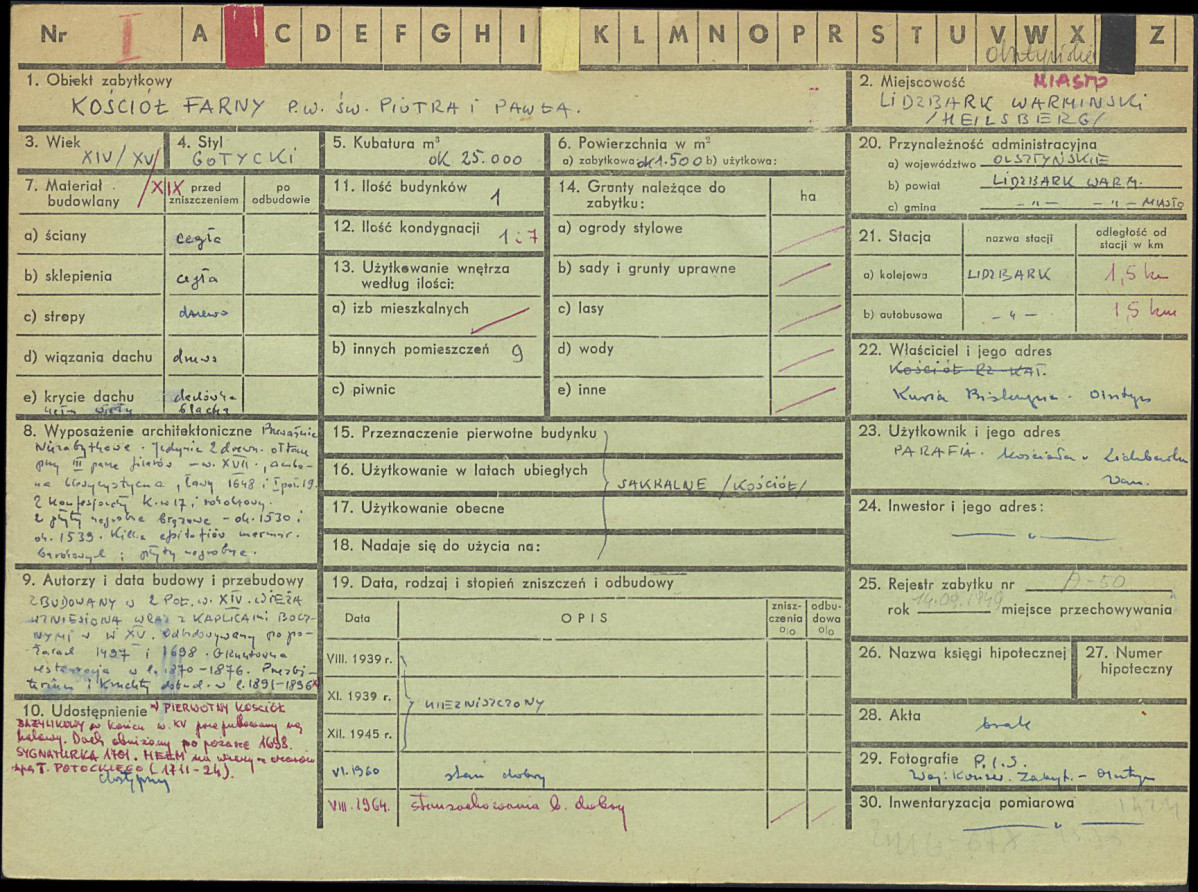 Nr I A C D E F G H I K L M N O P R S T U V W X Z
olsztyńskie
1. Obiekt zabytkowy
KOŚCIÓŁ FARNY P.W. ŚW. PIOTRA I PAWŁA.
2. Miejscowość MIASTO
LIDZBARK WARMIŃSKI
/HEILSBERG/
3. Wiek
XIV/XV/XIX
4. Styl
GOTYCKI
5. Kubatura m³
ok 25.000
6. Powierzchnia w m²
a) zabytkowa ok 1.500 b) użytkowa:
7. Materiał budowlany
przed zniszczeniem
po odbudowie
a) ściany cegła
b) sklepienia cegła
c) stropy drzewo
d) wiązania dachu drzewo
e) krycie dachu dachówka
hełm wieży blacha
8. Wyposażenie architektoniczne Przeważnie
Niezabytkowe. Jedynie 2 drewn. ołtarze
przy III parze filarów - w. XVII.,
na klasycystyczna, ławy 1648 i I poł. 19.
2 konfesjonały K. w 17 i rokokowy.
2 płyty nagrobne brązowe - ok. 1530 i
ok. 1539. Kilka epitafiów marmur.
barokowych i płyty nagrobne.
9. Autorzy i data budowy i przebudowy
ZBUDOWANY W 2 POŁ. W. XIV. WIEŻA
WZNIESIONA WRAZ Z KAPLICAMI BOCZ-
NYMI W W XV. Odbudowywany po po-
żarach 1497 i 1698. Gruntowna
restauracja w l. 1870-1876. Prezbi-
terium i Kruchty dobud. w l. 1891-1896
10. Udostępnienie PIERWOTNY KOŚCIÓŁ
BAZYLIKOWY w końcu w. XV przebudowany na
halowy. Dach obniżony po pożarze 1698.
SYGNATURKA 1701. HEŁM na wieży w czasów
bpa T. POTOCKIEGO (1711-24).
dostępny
11. Ilość budynków 1
12. Ilość kondygnacji 1 i 7
13. Użytkowanie wnętrza
według ilości:
a) izb mieszkalnych
b) innych pomieszczeń 9
c) piwnic
14. Grunty należące do
zabytku:
ha
a) ogrody stylowe
b) sady i grunty uprawne
c) lasy
d) wody
e) inne
15. Przeznaczenie pierwotne budynku
16. Użytkowanie w latach ubiegłych
SAKRALNE /KOŚCIÓŁ/
17. Użytkowanie obecne
18. Nadaje się do użycia na:
19. Data, rodzaj i stopień zniszczeń i odbudowy
Data
OPIS
znisz-
czenia
%
odbu-
dowa
%
VIII. 1939 r.
XI. 1939 r.
NIEZNISZCZONY
XII. 1945 r.
VI. 1960 stan dobry
VIII. 1964. stan zachowania b. dobry
20. Przynależność administracyjna
a) województwo OLSZTYŃSKIE
b) powiat LIDZBARK WARM.
c) gmina - " - - " - MIASTO
21. Stacja
nazwa stacji
odległość od
stacji w km
a) kolejowa LIDZBARK 1,5 km
b) autobusowa - " - 1,5 km
22. Właściciel i jego adres
Kościół Rz-KAT.
Kuria Biskupia - Olsztyn
23. Użytkownik i jego adres
PARAFIA. Kościoła w Lidzbarku
Warm.
24. Inwestor i jego adres:
— " —
25. Rejestr zabytku nr A-50
rok 14.09.1949 miejsce przechowywania
26. Nazwa księgi hipotecznej
27. Numer
hipoteczny
28. Akta
brak
29. Fotografie P.I.S.
Woj. Konserw. Zabyt. - Olsztyn
30. Inwentaryzacja pomiarowa
— " —